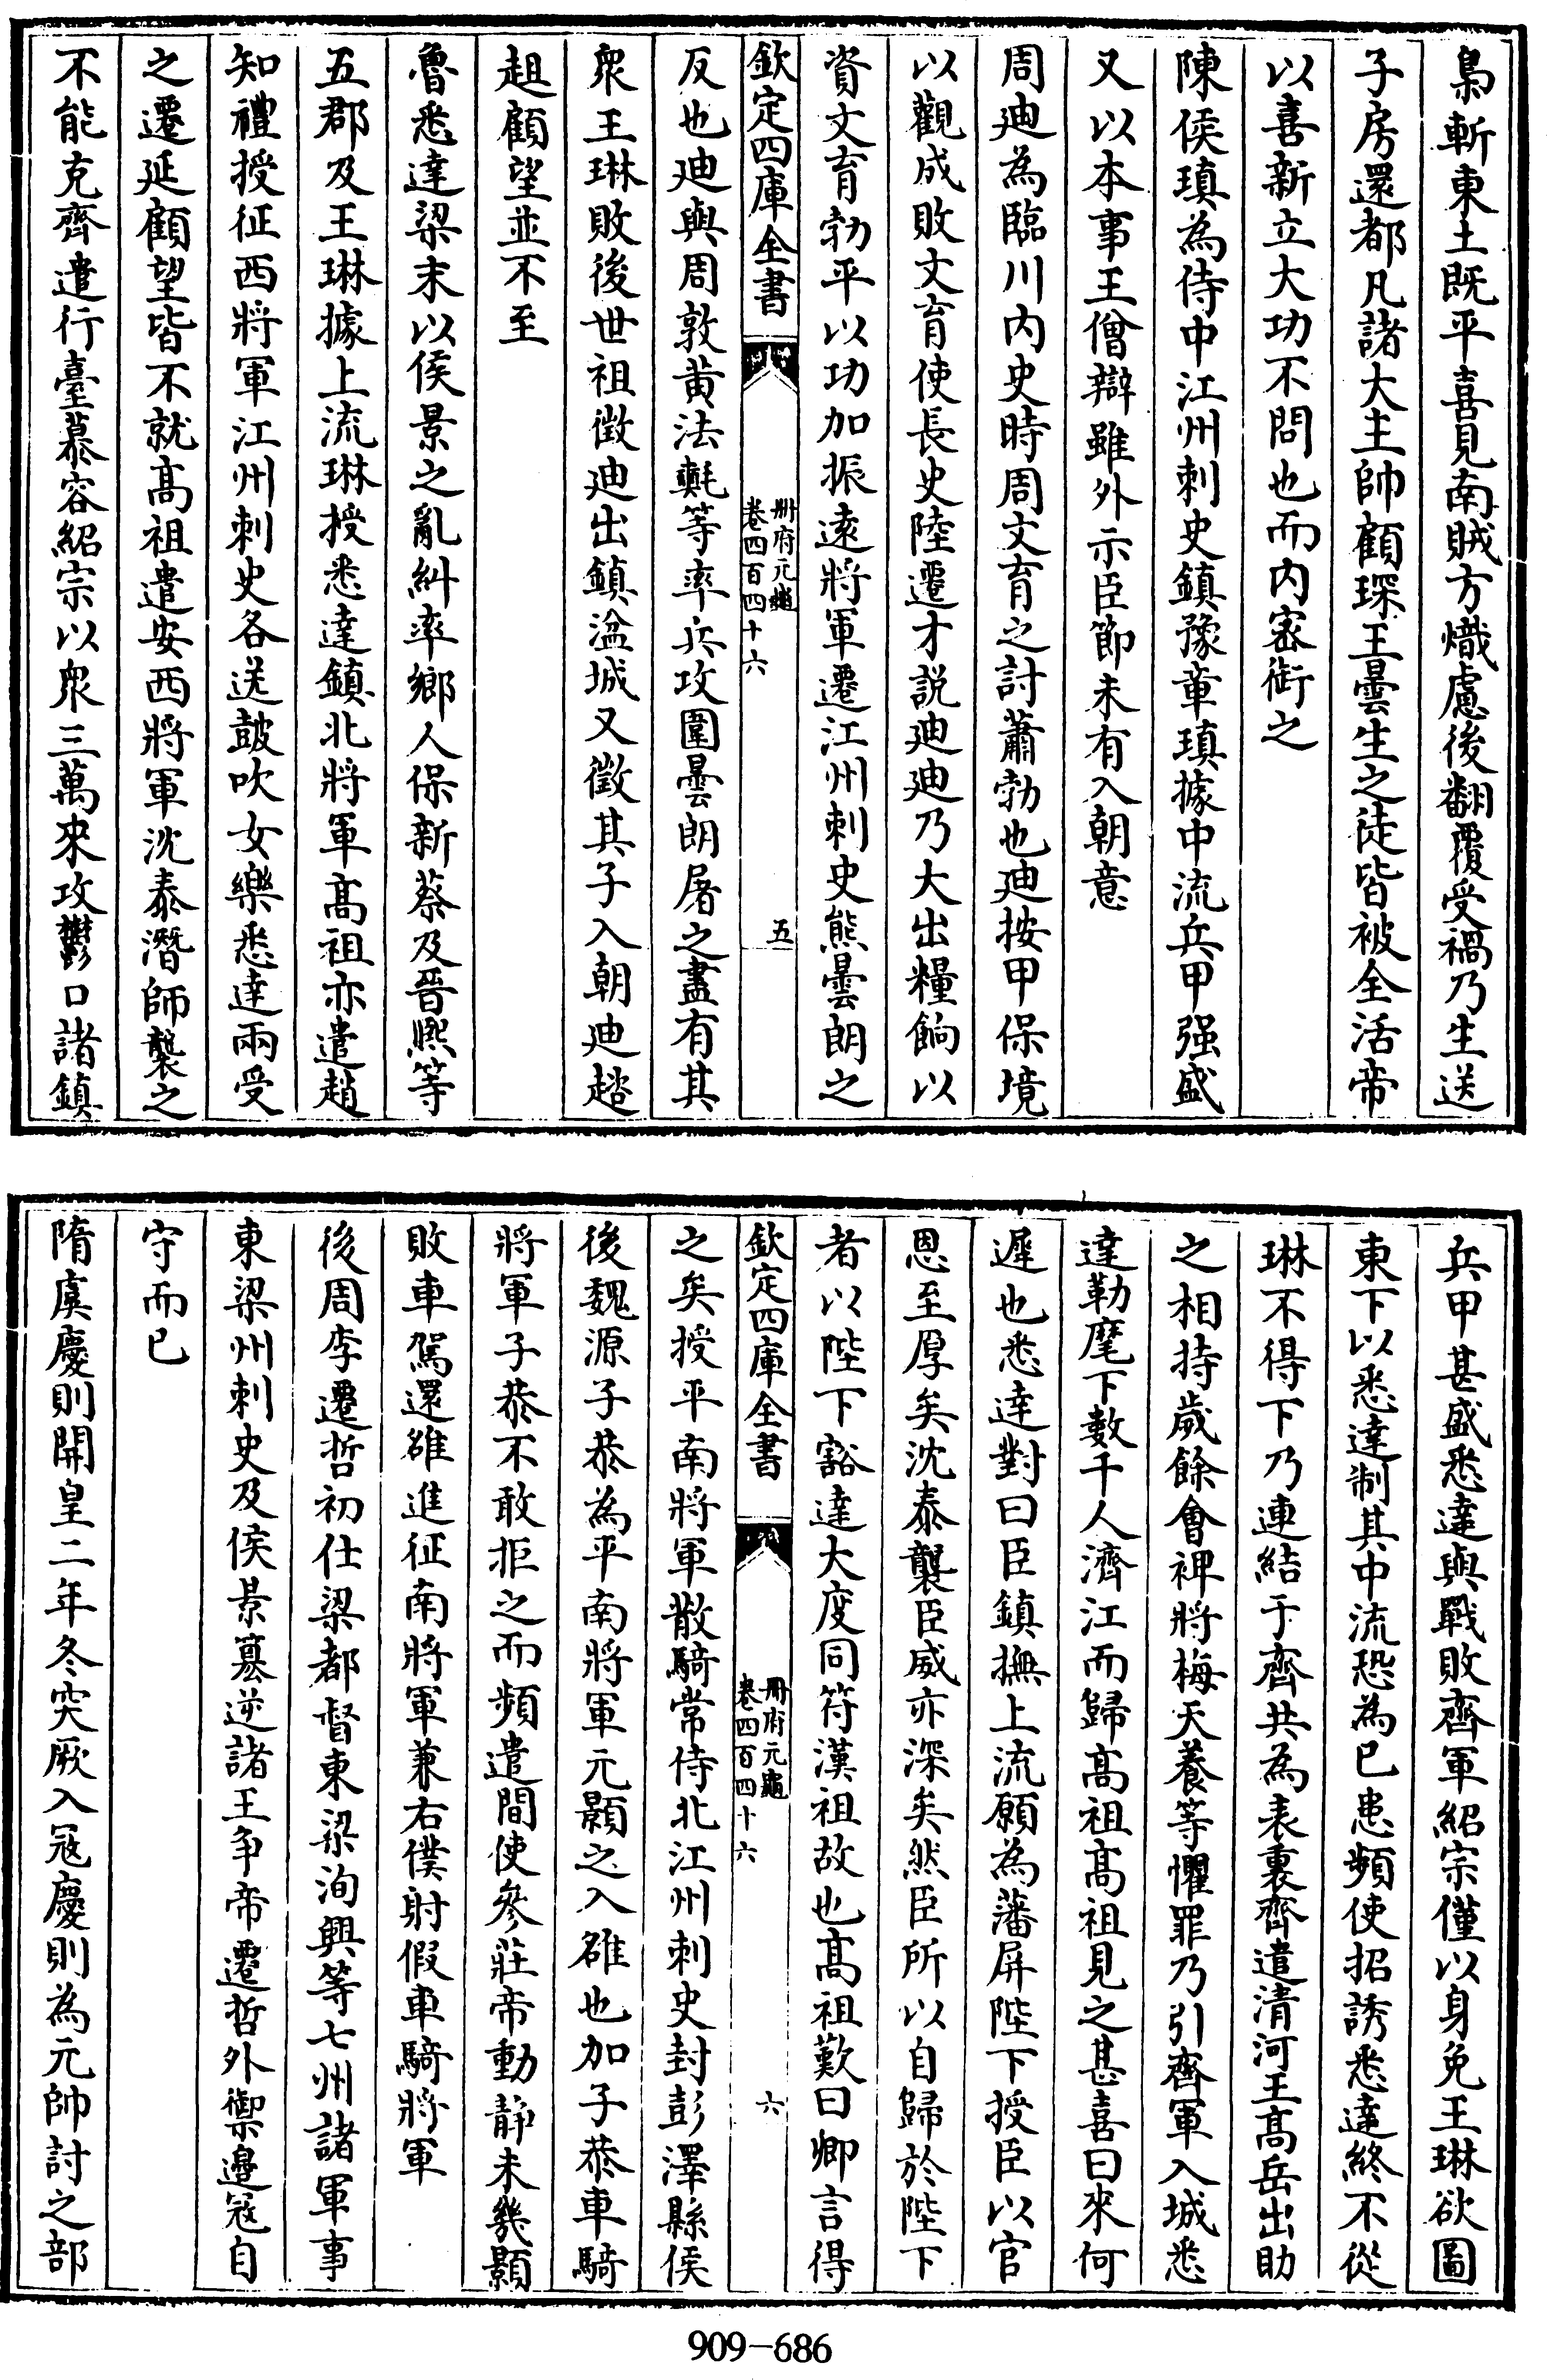 梟斬東土既平喜見南賊方熾慮後翻覆受禍乃生送
子房還都凡諸大主帥顧琛王曇生之徒皆被全活帝
以喜新立大功不問也而内密銜之
陳侯瑱為侍中江州刺史鎮豫章瑱據中流兵甲强盛
又以本事王僧辯雖外示臣節未有入朝意
周廸為臨川内史時周文育之討蕭勃也廸按甲保境
以觀成敗文育使長史陸遷才説廸廸乃大出糧餉以
資文育勃平以功加振逺將軍遷江州刺史熊曇朗之
欽定四庫全書
冊府元龜
卷四百四十六
五
反也廸與周敦黄法𣰋等率兵攻圍曇朗屠之盡有其
衆王琳敗後世祖徴廸出鎮湓城又徵其子入朝廸趦
趄顧望並不至
魯悉達梁末以侯景之亂糾率鄉人保新蔡及晉熙等
五郡及王琳據上流琳授悉達鎮北將軍髙祖亦遣趙
知禮授征西將軍江州刺史各送鼓吹女樂悉達兩受
之遷延顧望皆不就髙祖遣安西將軍沈泰潛師襲之
不能克齊遣行臺慕容紹宗以衆三萬來攻鬱口諸鎮
兵甲甚盛悉達與戰敗齊軍紹宗僅以身免王琳欲圖
東下以悉達制其中流恐為已患頻使招誘悉達終不從
琳不得下乃連結于齊共為表裏齊遣清河王髙岳出助
之相持嵗餘會裨將梅天養等懼罪乃引齊軍入城悉
達勒麾下數千人濟江而歸髙祖髙祖見之甚喜曰來何
遲也悉達對曰臣鎮撫上流願為藩屏陛下授臣以官
恩至厚矣沈泰襲臣威亦深矣然臣所以自歸於陛下
者以陛下豁達大度同符漢祖故也髙祖歎曰卿言得
欽定四庫全書
冊府元龜
卷四百四十六
六
之矣授平南將軍散騎常侍北江州刺史封彭澤縣侯
後魏源子恭為平南將軍元顥之入雒也加子恭車騎
將軍子恭不敢拒之而頻遣間使參莊帝動静未幾顥
敗車駕還雒進征南將軍兼右僕射假車騎將軍
後周李遷哲初仕梁都督東梁洵興等七州諸軍事
東梁州刺史及侯景簒逆諸王争帝遷哲外禦邊冦自
守而已
隋虞慶則開皇二年冬突厥入冦慶則為元帥討之部
909-686